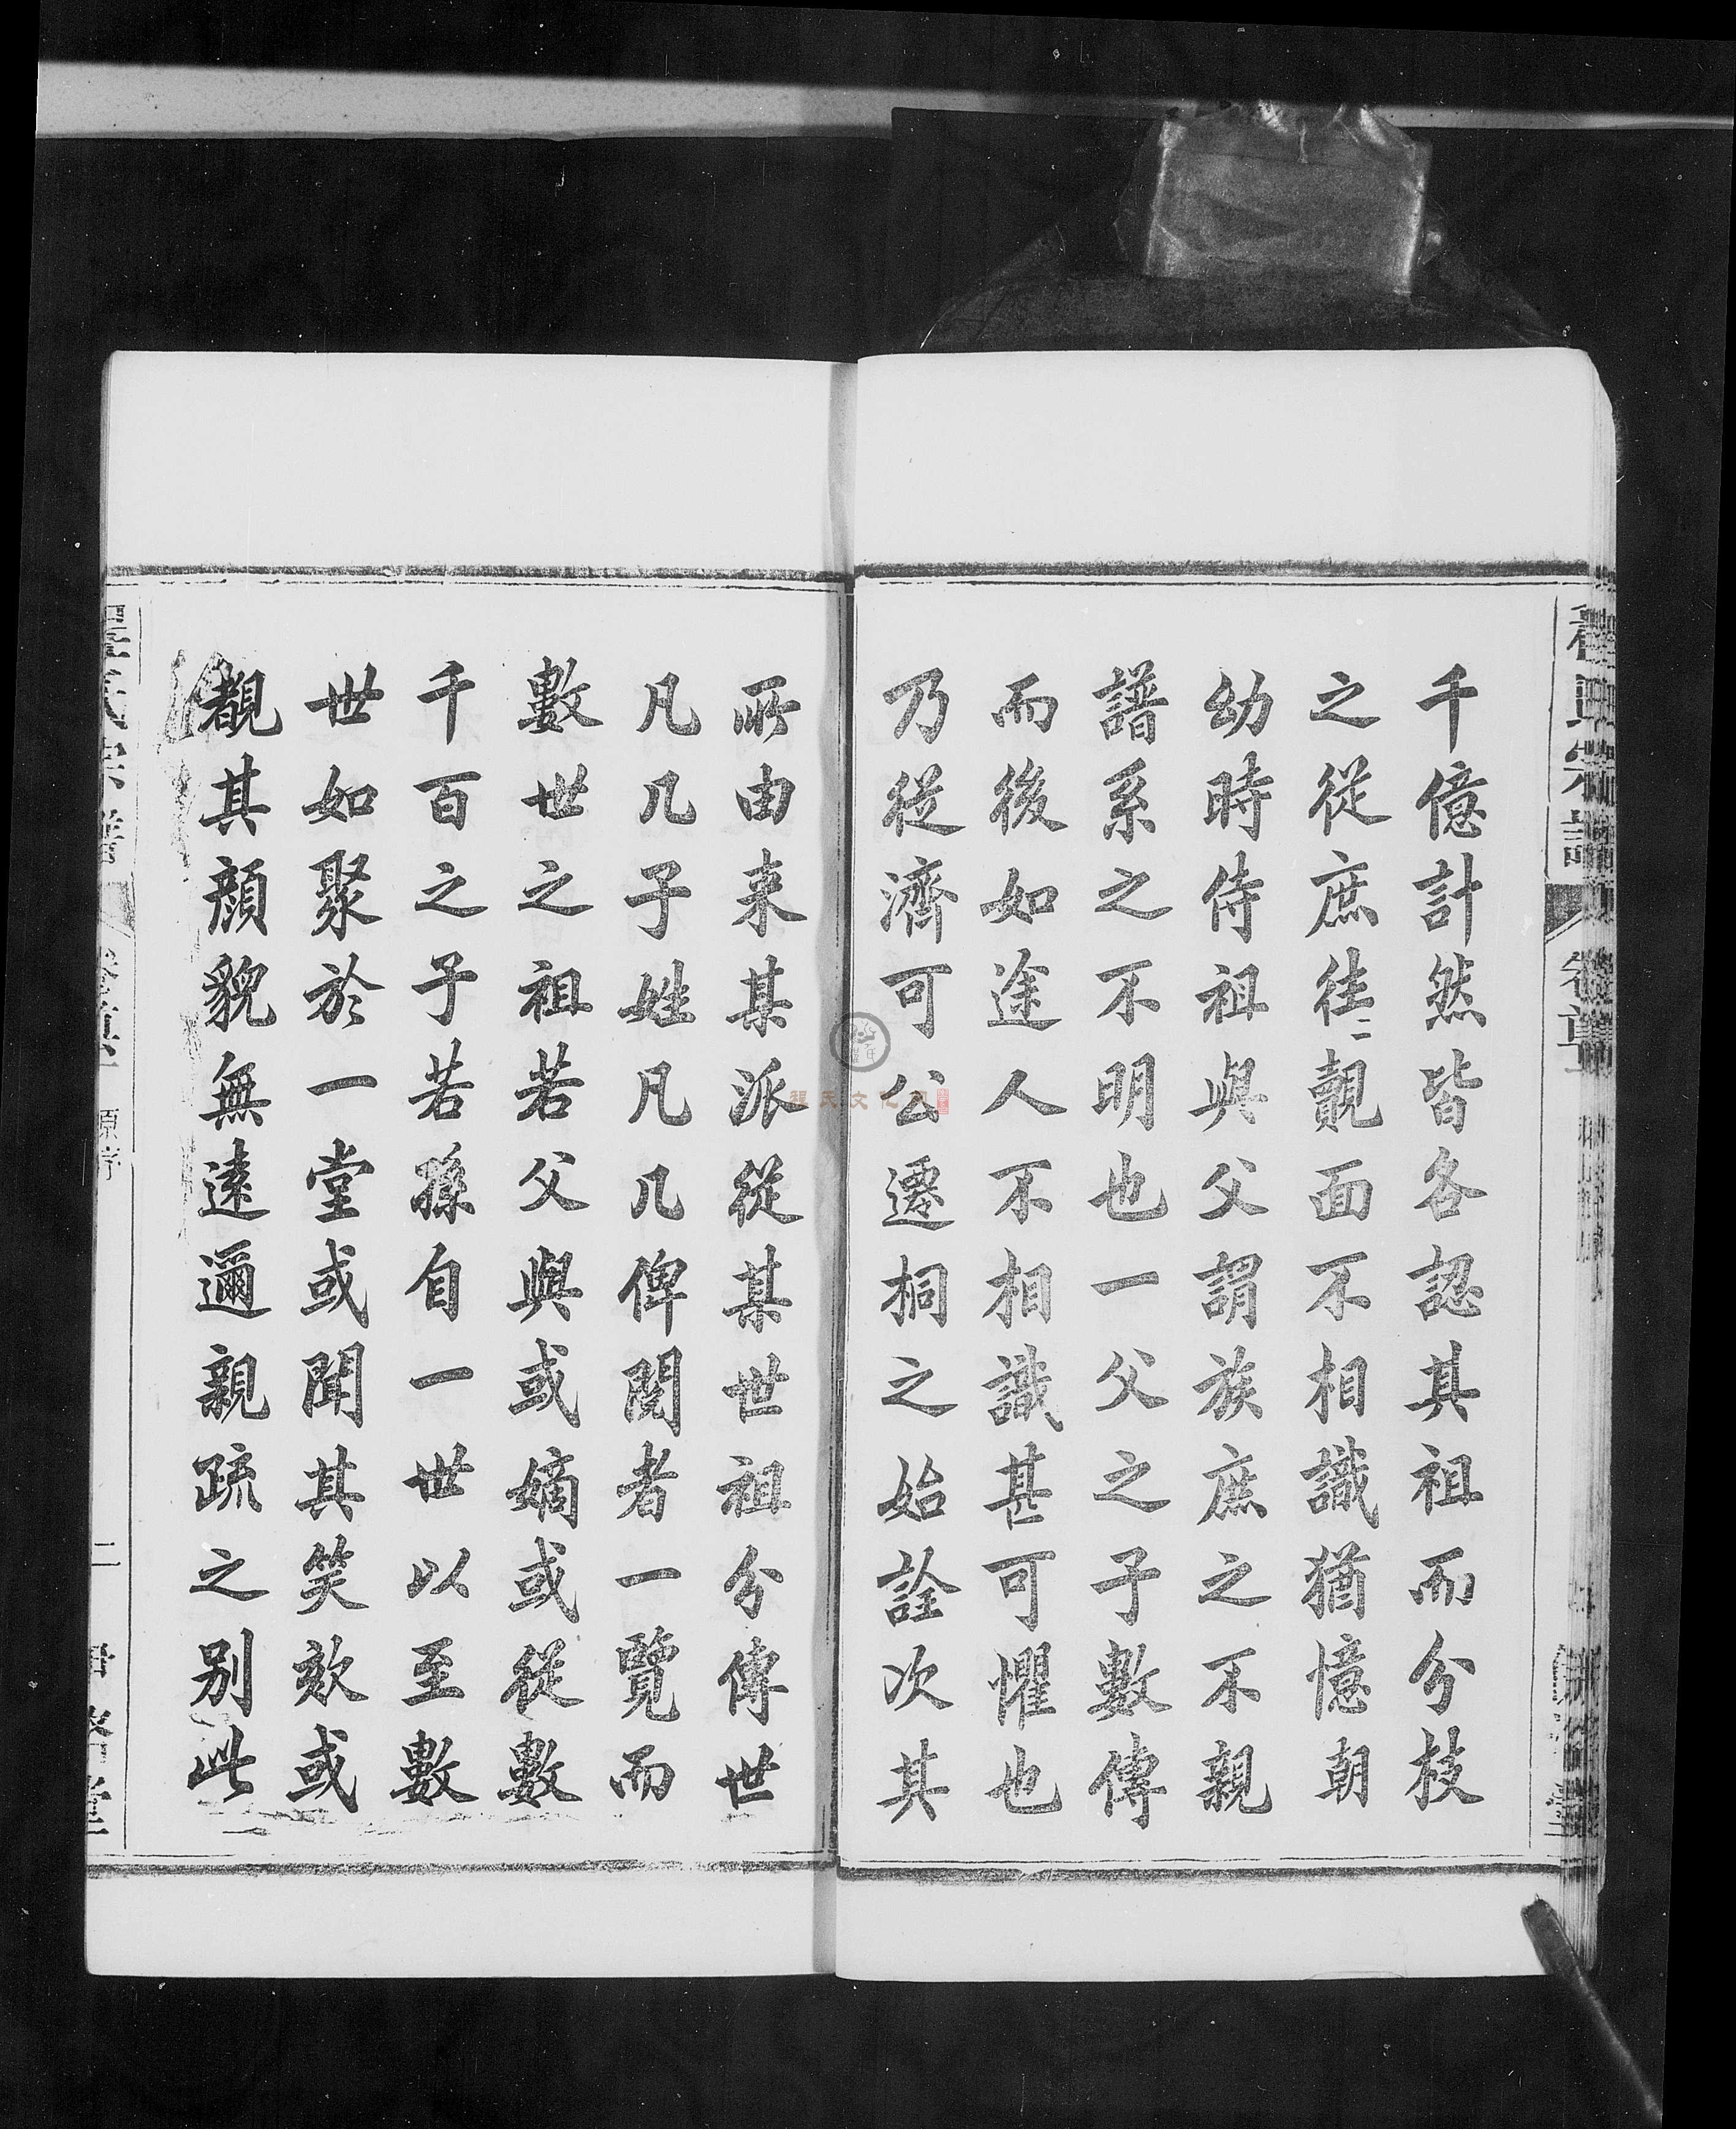 千億計然皆各認其祖而分枝
之從庶徃二覿面不相識猶憶朝
幼時侍祖與父謂族庶之不親
譜系之不明也一父之子數傳
而後如途人不相識甚可懼也
乃從濟可公遷桐之始詮次其
所由来某派從某世祖分傳世
凡几子姓凡几俾閱者一覽而
數世之祖若父與或嫡或從數
千百之子若孫自一世以至數
世如聚於一堂或聞其笑欬或
覩其顔貌無遠邇親疏之别此
原序
二